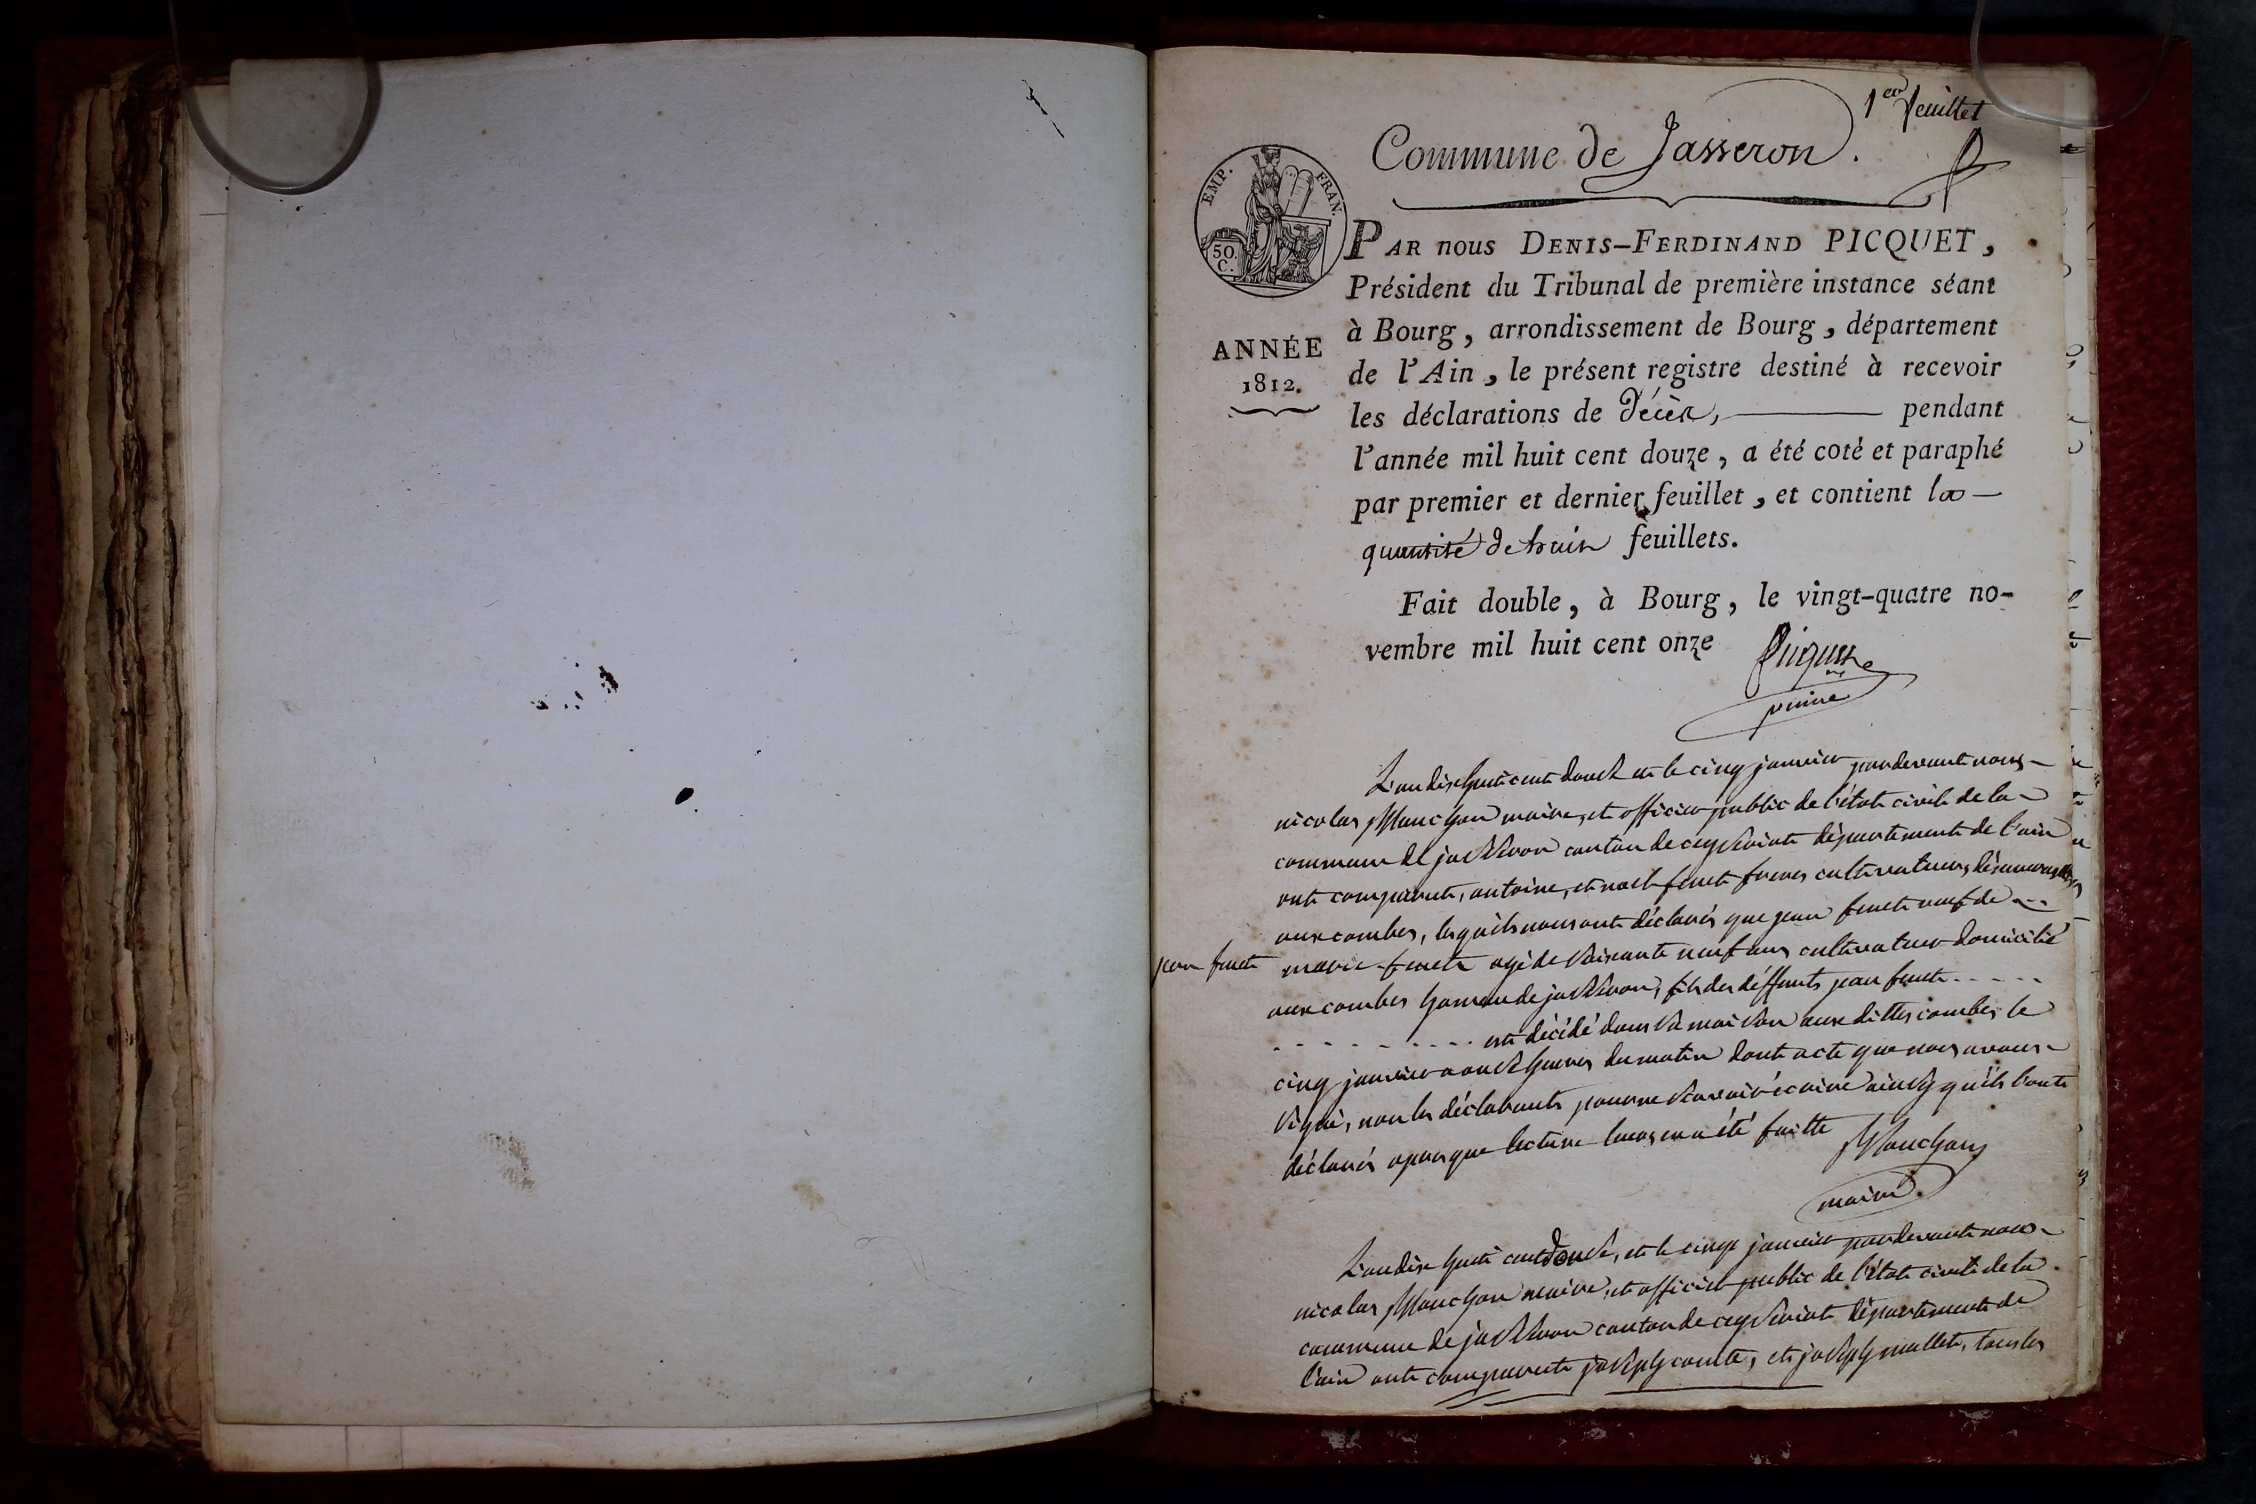 1er feuillet
Commune de Jasseron.
EMP. FRAN.
50 C.
PAR nous DENIS-FERDINAND PICQUET,
Président du Tribunal de première instance séant
à Bourg, arrondissement de Bourg, département
ANNÉE
1812.
de l'Ain, le présent registre destiné à recevoir
les déclarations de Décès, pendant
l'année mil huit cent douze, a été coté et paraphé
par premier et dernier feuillet, et contient la
quantité de huit feuillets.
Fait double, à Bourg, le vingt-quatre no-
vembre mil huit cent onze
Picquet
L'an dix huit cent douse et le cinq janvier pardevant nous
nicolas Mauchon maire, et officier public de l'état civile de la
commune de jasseron canton de ceyseriat département de l'ain
ont comparut, antoine, et noel fenet freres cultivateurs demeurants
aux combes, lesquels nous ont déclarés que jean fenet veuf de
jean fenet
marie fenet agé de soisante neuf ans cultivateur domicilié
aux combes hameau de jasseron, fils des déffunts jean fenet
est décédé dans sa maison aux dittes combes le
cinq janvier a onse heures du matin dont acte que nous avons
signé, non les déclarants pour ne savoir écrire ainsy qu'ils l'ont
déclarés apres que lecture leurs en a été faitte
Mauchon
maire
L'an dix huit cent douse, et le cinq janvier pardevant nous
nicolas Mauchon maire, et officier public de l'état civile de la
commune de jasseron canton de ceyseriat département de
l'ain ont comparut joseph comte, et joseph mallet, tous les